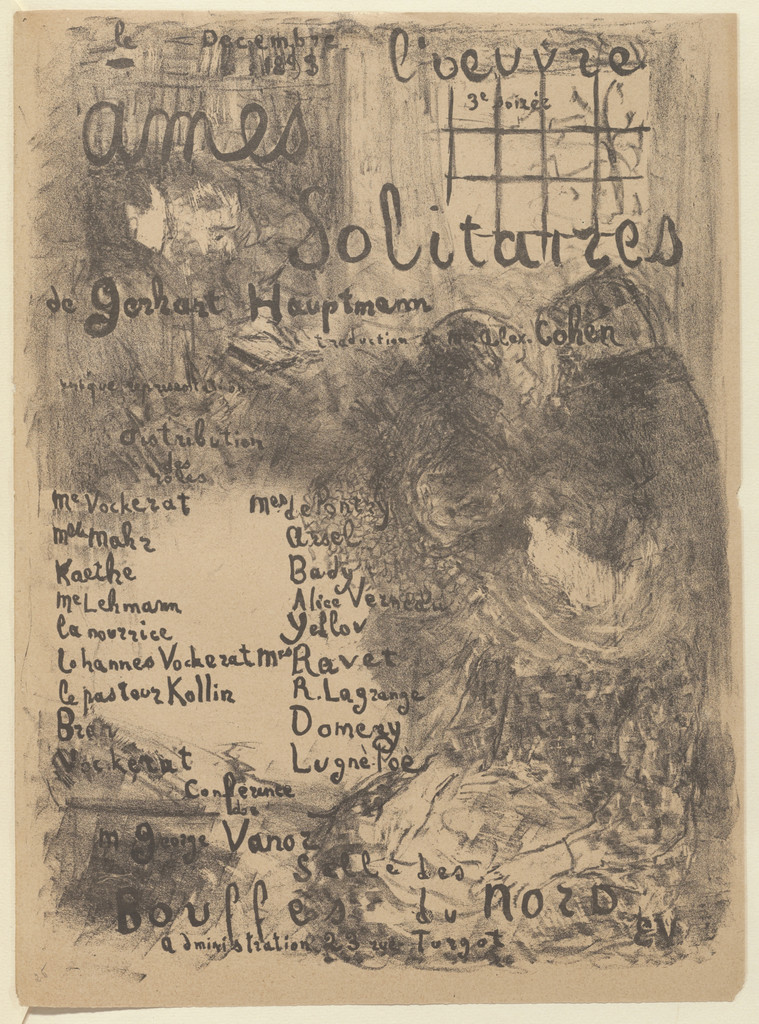 le Décembre
1893
l'oeuvre
3e soirée
ames
Solitaires
de Gerhart Hauptmann
traduction de Mr Alex. Cohen
unique représentation
Distribution
des
rôles
Me Vockerat Mes de Pontry
Melle Mahr Arsel
Kaethe Bady
Me Lehmann Alice Verneau
la nourrice Yellov
Lohannes Vockerat Mrs Ravet
le pasteur Kollin R. Lagrange
Bran Domeny
Vockerat Lugné Poë
Conférence
de
M George Vanor
Salle des
Bouffes du Nord
administration 23 rue Turgot
EV